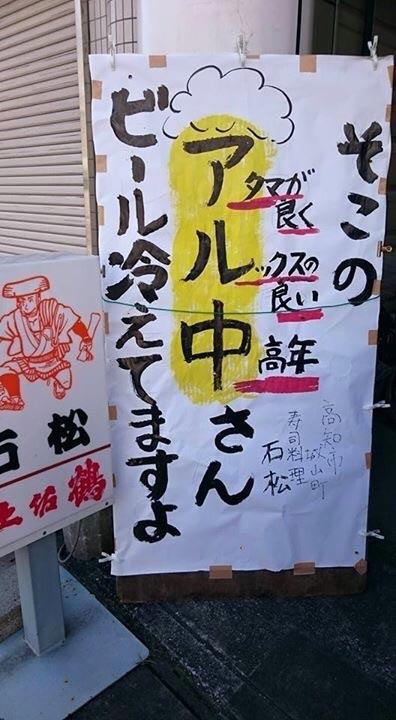 そこの
アル中さん
タマが
良く
ックスの
良い
高年
ビール冷えてますよ
高知市
城山町
寿司料理
石松
石松
土佐鶴